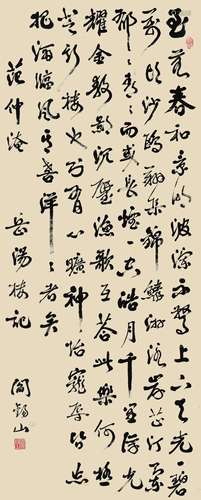 至若春和景明波瀾不驚上下天光一碧
萬頃沙鷗翔集錦鱗游泳岸芷汀蘭
郁々青々而或長煙一空皓月千里浮光
耀金靜影沉璧漁歌互答此樂何極
登斯樓也則有心曠神怡寵辱皆忘
把酒臨風其喜洋々者矣
范仲淹 岳陽樓記 閻錫山